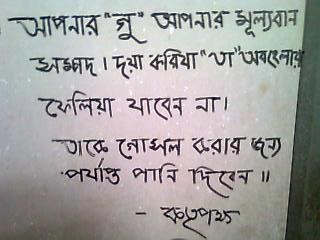 আপনার "গু" আপনার মূল্যবান
সম্পদ। দয়া করিয়া "তা" অবহেলায়
ফেলিয়া যাবেন না।
তাকে গোসল করার জন্য
পর্যাপ্ত পানি দিবেন॥
- কতৃপক্ষ